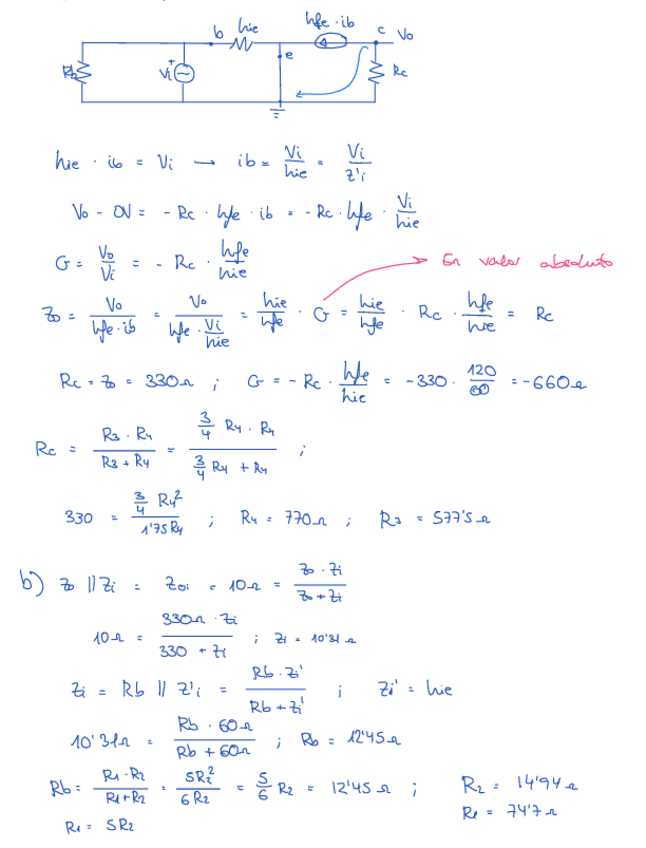 b hie hfe · ib c Vo
Rb Vi + e Rc
hie · ib = Vi → ib = Vi/hie = Vi/z'i
Vo - 0V = - Rc · hfe · ib = - Rc · hfe · Vi/hie
G = Vo/Vi = - Rc · hfe/hie → En valor absoluto
Zo = Vo/(hfe · ib) = Vo/(hfe · Vi/hie) = hie/hfe · G = hie/hfe · Rc · hfe/hie = Rc
Rc = Zo = 330Ω ; G = - Rc · hfe/hie = -330 · 120/60 = -660Ω
Rc = (R3 · R4)/(R3 + R4) = (3/4 R4 · R4)/(3/4 R4 + R4) ;
330 = (3/4 R4²)/(1'75 R4) ; R4 = 770Ω ; R3 = 577'5Ω
b) Zo || Zi = Zoi = 10Ω = (Zo · Zi)/(Zo + Zi)
10Ω = (330Ω · Zi)/(330 + Zi) ; Zi = 10'31Ω
Zi = Rb || Z'i = (Rb · Zi')/(Rb + Zi') ; Zi' = hie
10'31Ω = (Rb · 60Ω)/(Rb + 60Ω) ; Rb = 12'45Ω
Rb = (R1 · R2)/(R1 + R2) = 5R2²/6R2 = 5/6 R2 = 12'45Ω ; R2 = 14'94Ω
R1 = 5R2 R1 = 74'7Ω